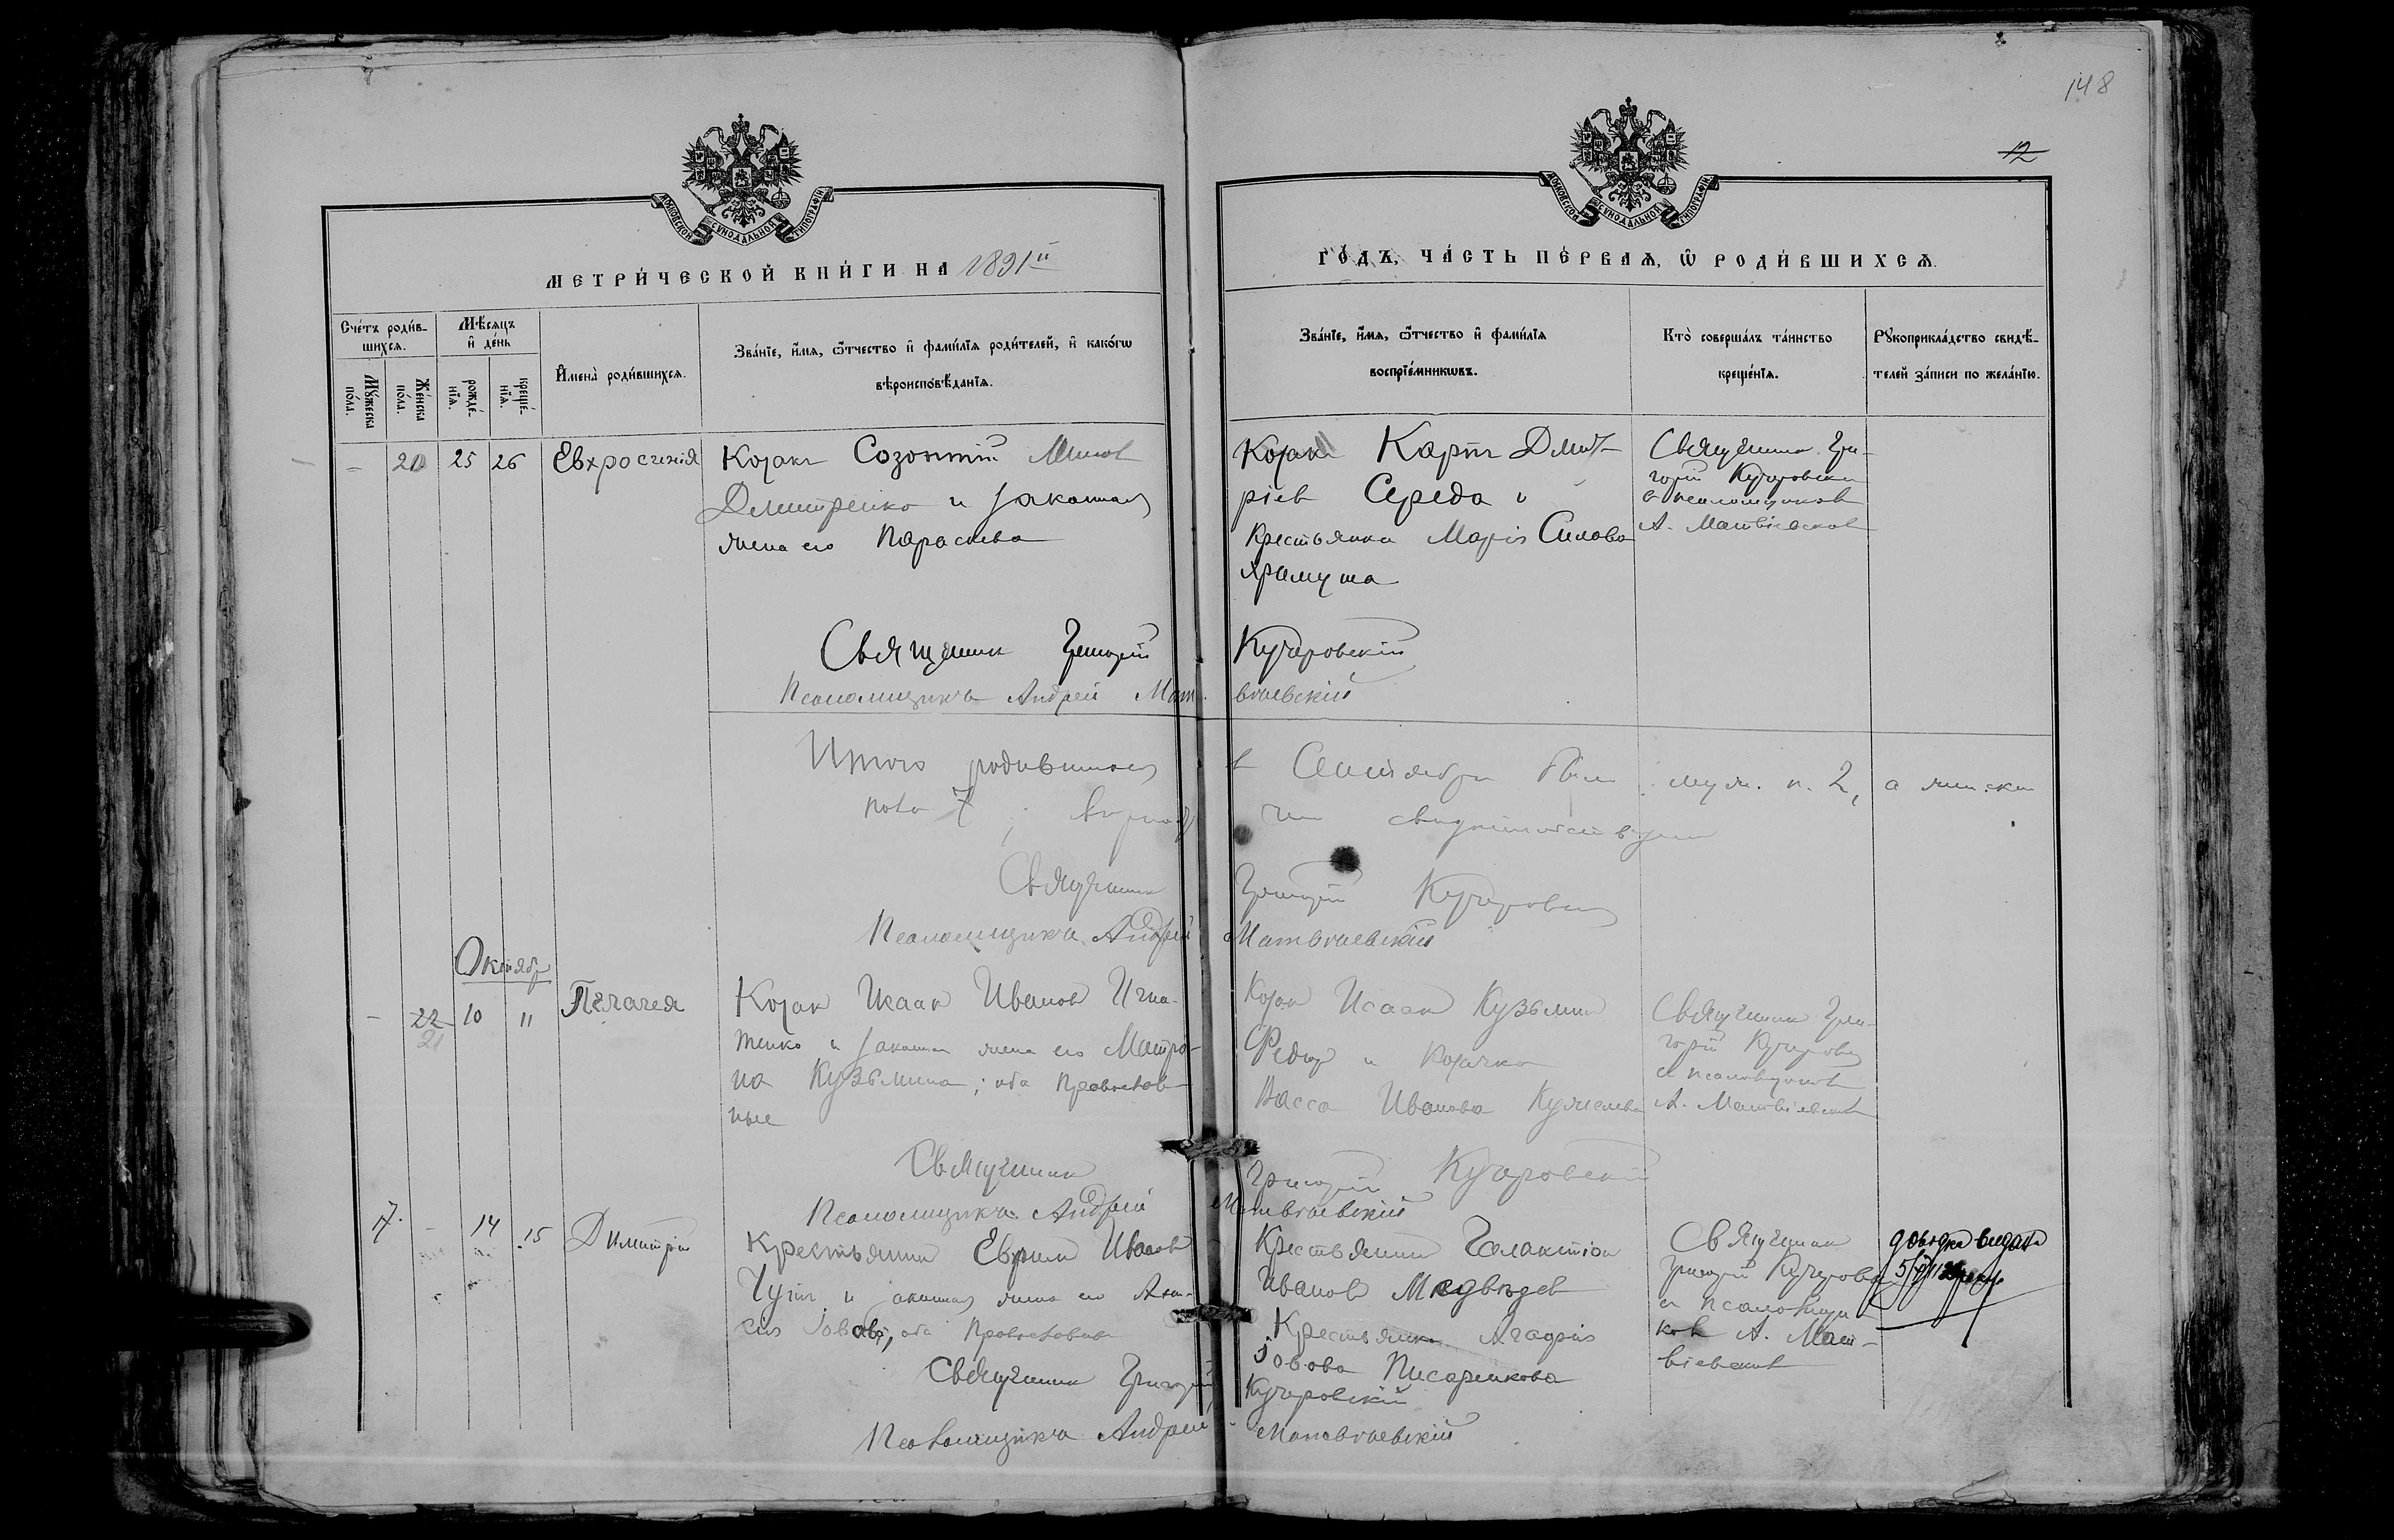 148
12
МОСКОВСКОЙ СѴНОДАЛЬНОЙ ТИПОГРАФІИ
МОСКОВСКОЙ СѴНОДАЛЬНОЙ ТИПОГРАФІИ
МЕТРИ́ЧЕСКОЙ КНИ́ГИ НА 1891й
ГО́ДЪ, ЧА́СТЬ ПЕ́РВАЯ, Ѡ РОДИ́ВШИХСЯ.
Сче́тъ роди́в-
шихся.
Мѣ́сяцъ
и҆ де́нь
Мꙋ́жеска
по́ла.
Же́нска
по́ла.
рожде́-
нїя.
креще́-
нїя.
И҆мена̀ роди́вшихся.
Зва́нїе, и҆́мя, ѻ҆́тчество и҆ фами́лїя роди́телей, и҆ како́гѡ
вѣроисповѣ́данїя.
Зва́нїе, и҆́мя, ѻ҆́тчество и҆ фами́лїя
воспрїе́мникѡвъ.
Кто̀ соверша́лъ та́инство
креще́нїя.
Рꙋкоприкла́дство свидѣ́-
телей за́писи по жела́нїю.
- 20 25 26 Евхросинія
Козакъ Созонтій
Дмитренко и законная
жена его Параскева
Козакъ Карпъ Дмит-
ріевъ Середа и
Крестьянка Марія Силова
Священникъ Гри-
горій Кучеровскій
съ псаломщикомъ
А. Матвіевскимъ
Священникъ Григорій Кучеровскій
Псаломщикъ Андрей Матвѣевскій
Итого родившихся въ Сентябрѣ было муж. п. 2, а женска
пола 7,
Священникъ Григорій Кучеровскій
Псаломщикъ Андрей Матвѣевскій
Октябрь
- 22 10 11 Пелагея
21
Козакъ Исаакъ Ивановъ Игна-
тенко и законная жена его Матро-
на Кузьмина; оба православ-
ные
Козакъ Исаакъ Кузьминъ
и козачка
Васса Иванова
Священникъ Гри-
горій Кучеровскій
съ псаломщикомъ
А. Матвіевскимъ
Священникъ Григорій Кучеровскій
Псаломщикъ Андрей Матвѣевскій
17. - 14 15 Димитрій
Крестьянинъ Ивановъ
и законная жена его
оба православные
Крестьянинъ Галактіонъ
Ивановъ Медвѣдевъ
Крестьянка Агафія
Іовова Писаренкова
Священникъ
Григорій Кучеровскій
съ псаломщи-
комъ А. Мат-
віевскимъ
довідка видана
Священникъ Григорій Кучеровскій
Псаломщикъ Андрей Матвѣевскій